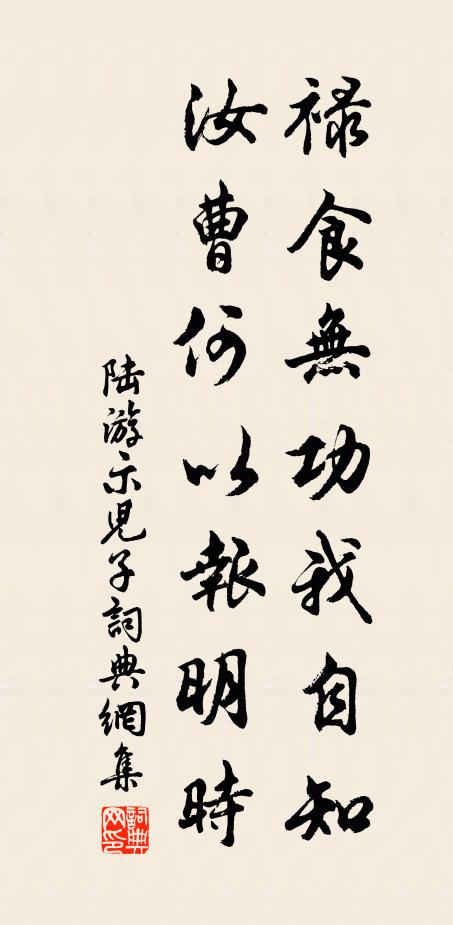 禄食無功我自知
汝曹何以報明時
陆游示兒子詞典網集
詞典网印